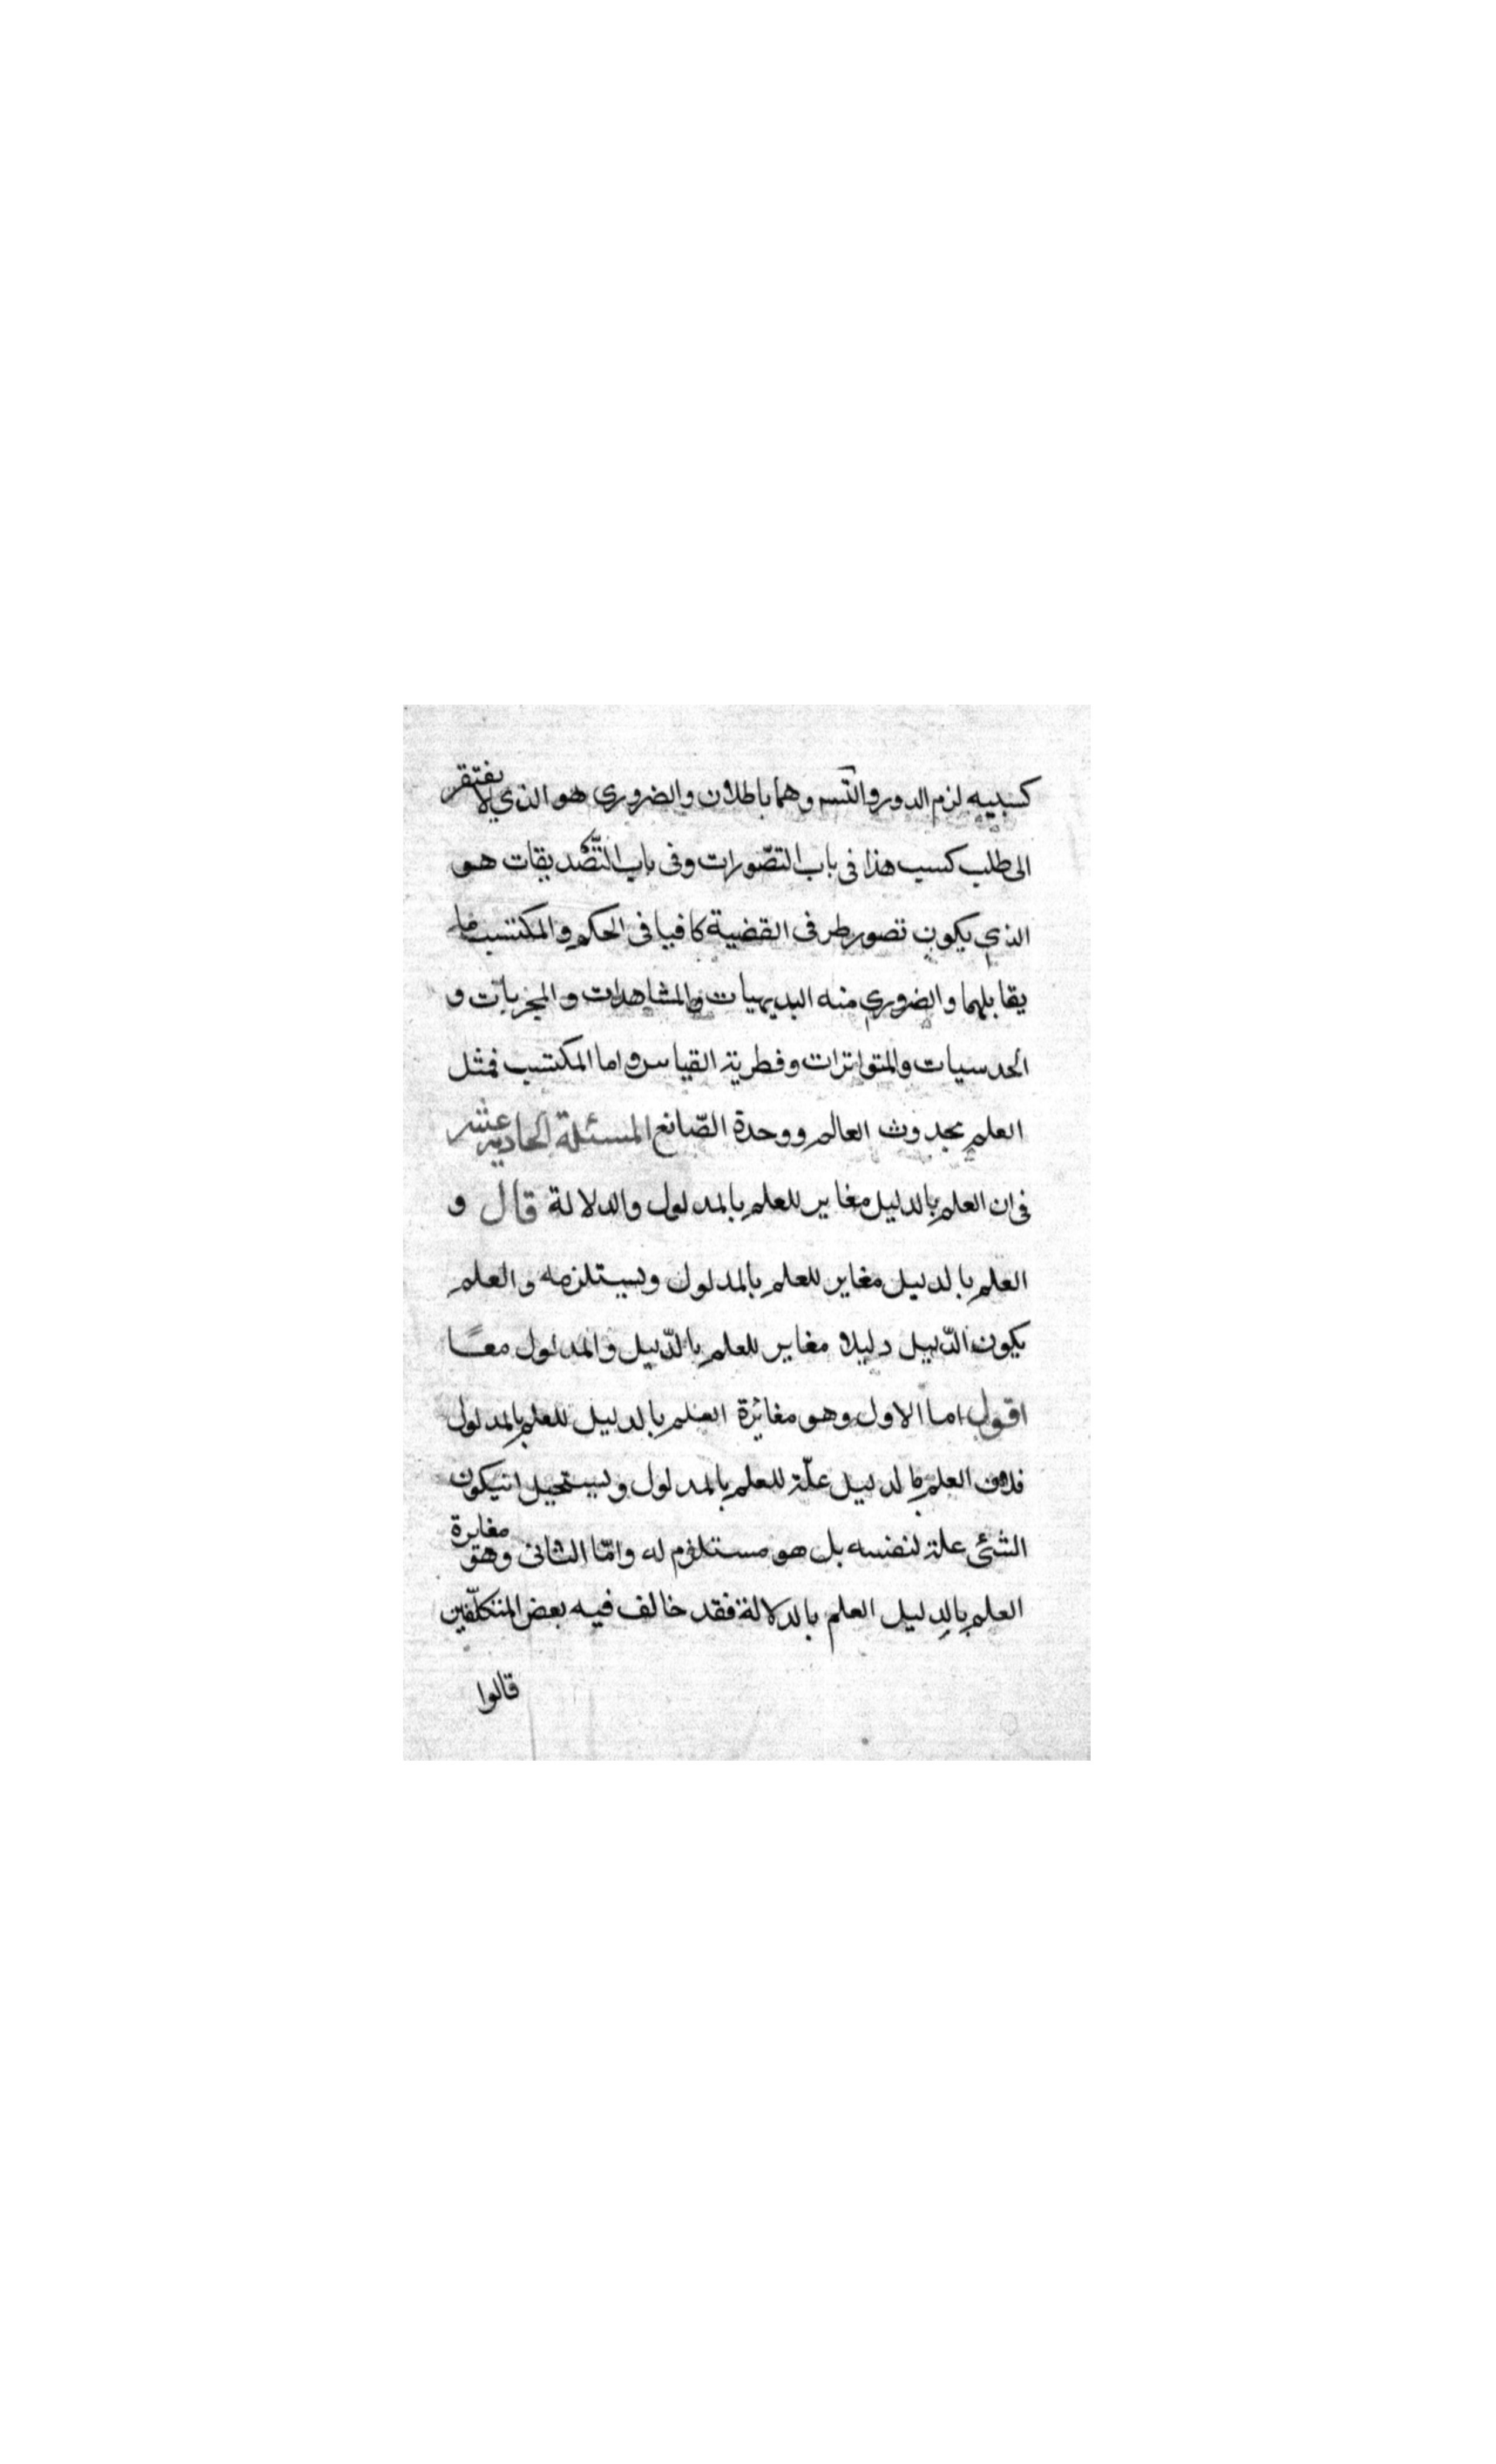 كسبيه لزم الدور والتسـ وهما باطلان والضروري هو الذي لا يفتقر
الى طلب كسب هذا فى باب التصّورات وفى باب التّصديقات هو
الذي يكون تصور طرفى القضية كافيا فى الحكم والمكتسب ما
يقابلهما والضروري منه البديهيات والمشاهدات والمجربات و
الحدسيات والمتواترات وفطرية القياس واما المكتسب فمثل
العلم بحدوث العالم ووحدة الصّانع المسئلة الحادية عشر
فى ان العلم بالدليل مغاير للعلم بالمدلول والدلالة قال و
العلم بالدليل مغاير للعلم بالمدلول ويستلزمه والعلم
يكون الدّليل دليلا مغاير للعلم بالدّليل والمدلول معًا
اقول اما الاول وهو مغائرة العلم بالدليل للعلم بالمدلول
فلان العلم بالدليل علّة للعلم بالمدلول ويستحيل انيكون
الشئى علة لنفسه بل هو مستلزم له وامّا الثانى وهو مغايرة
العلم بالدليل العلم بالدلالة فقد خالف فيه بعض المتكلّمين
قالوا